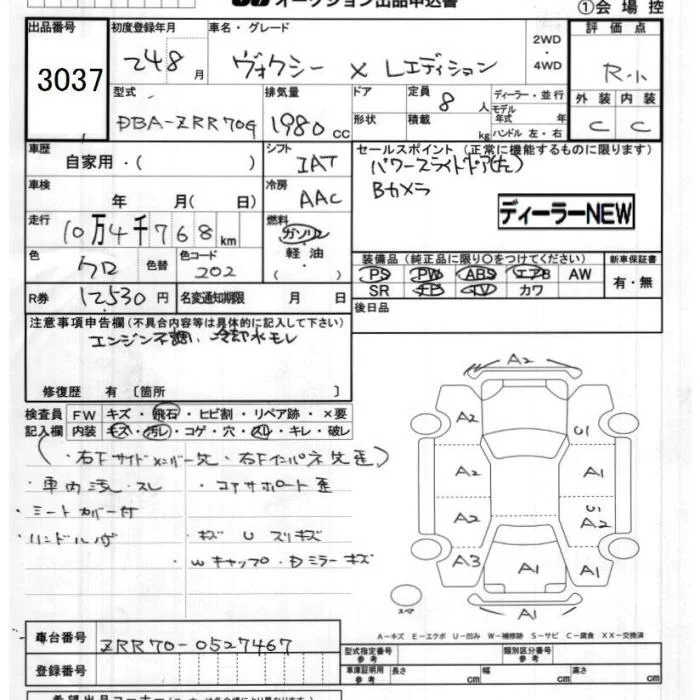 オークション出品申込書
①会場控
出品番号 初度登録年月 車名・グレード 評価点
3037 248月 ヴォクシー X Lエディション 2WD・4WD R小
型式 排気量 ドア 定員 8人 ディーラー・並行 外装 内装
DBA-ZRR70G 1980cc 形状 積載 kg モデル年式 年 ハンドル 左・右 C C
車歴 自家用・( ) シフト IAT セールスポイント (正常に機能するものに限ります)
パワースライドドア(左)
Bカメラ
車検 年 月( 日) 冷房 AAC
ディーラーNEW
走行 10万4千768km 燃料 ガソリン・軽油・( )
色 クロ 色替 色コード 202
装備品(純正品に限り○をつけてください) 新車保証書
PS PW ABS エアB AW 有・無
SR TV カワ
R券 12,530円 名変通知期限 月 日 後日品
注意事項申告欄(不具合内容等は具体的に記入して下さい)
エンジン不調、冷却水モレ
修復歴 有〔箇所 〕
検査員記入欄 FW キズ・飛石・ヒビ割・リペア跡・×要
内装 キズ・汚レ・コゲ・穴・スレ・キレ・破レ
(・右フサイドメンバー先・右フインパネ先歪)
・車内汚・スレ ・コアサポート歪
・シートカバー付
・ハンドルハゲ ・キズ U スリキズ
・Wキャップ・Dミラーキズ
A2
A2 U1
A2 A1
A2 U1 A2
A3 A1 A1
A1
スペア
A-キズ E-エクボ U-凹み W-補修跡 S-サビ C-腐食 XX-交換済
車台番号 ZRR70-0527467
登録番号
型式指定番号 参考 類別区分番号 参考
車庫証明用 参考 長さ cm 幅 cm 高さ cm